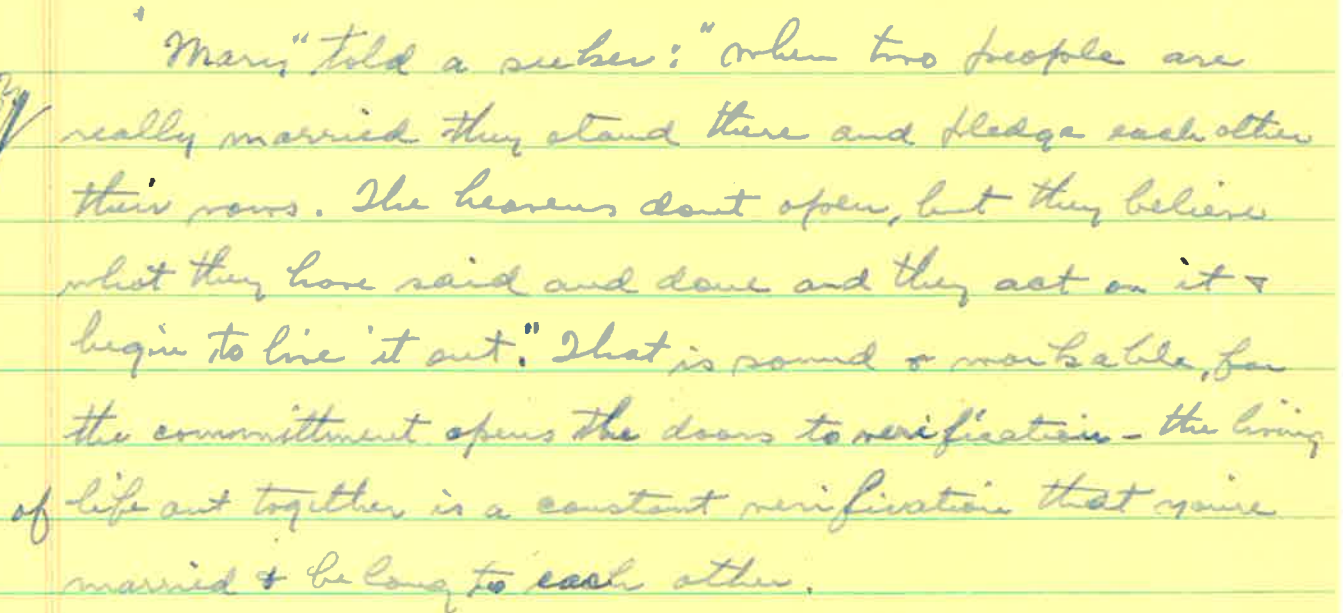 "Mary" told a seeker: "when two people are
really married they stand there and pledge each other
their vows. The heavens don't open, but they believe
what they have said and done and they act on it &
begin to live it out." That is sound & workable, for
the committment opens the doors to verification - the living
of life out together is a constant verification that you're
married & belong to each other.